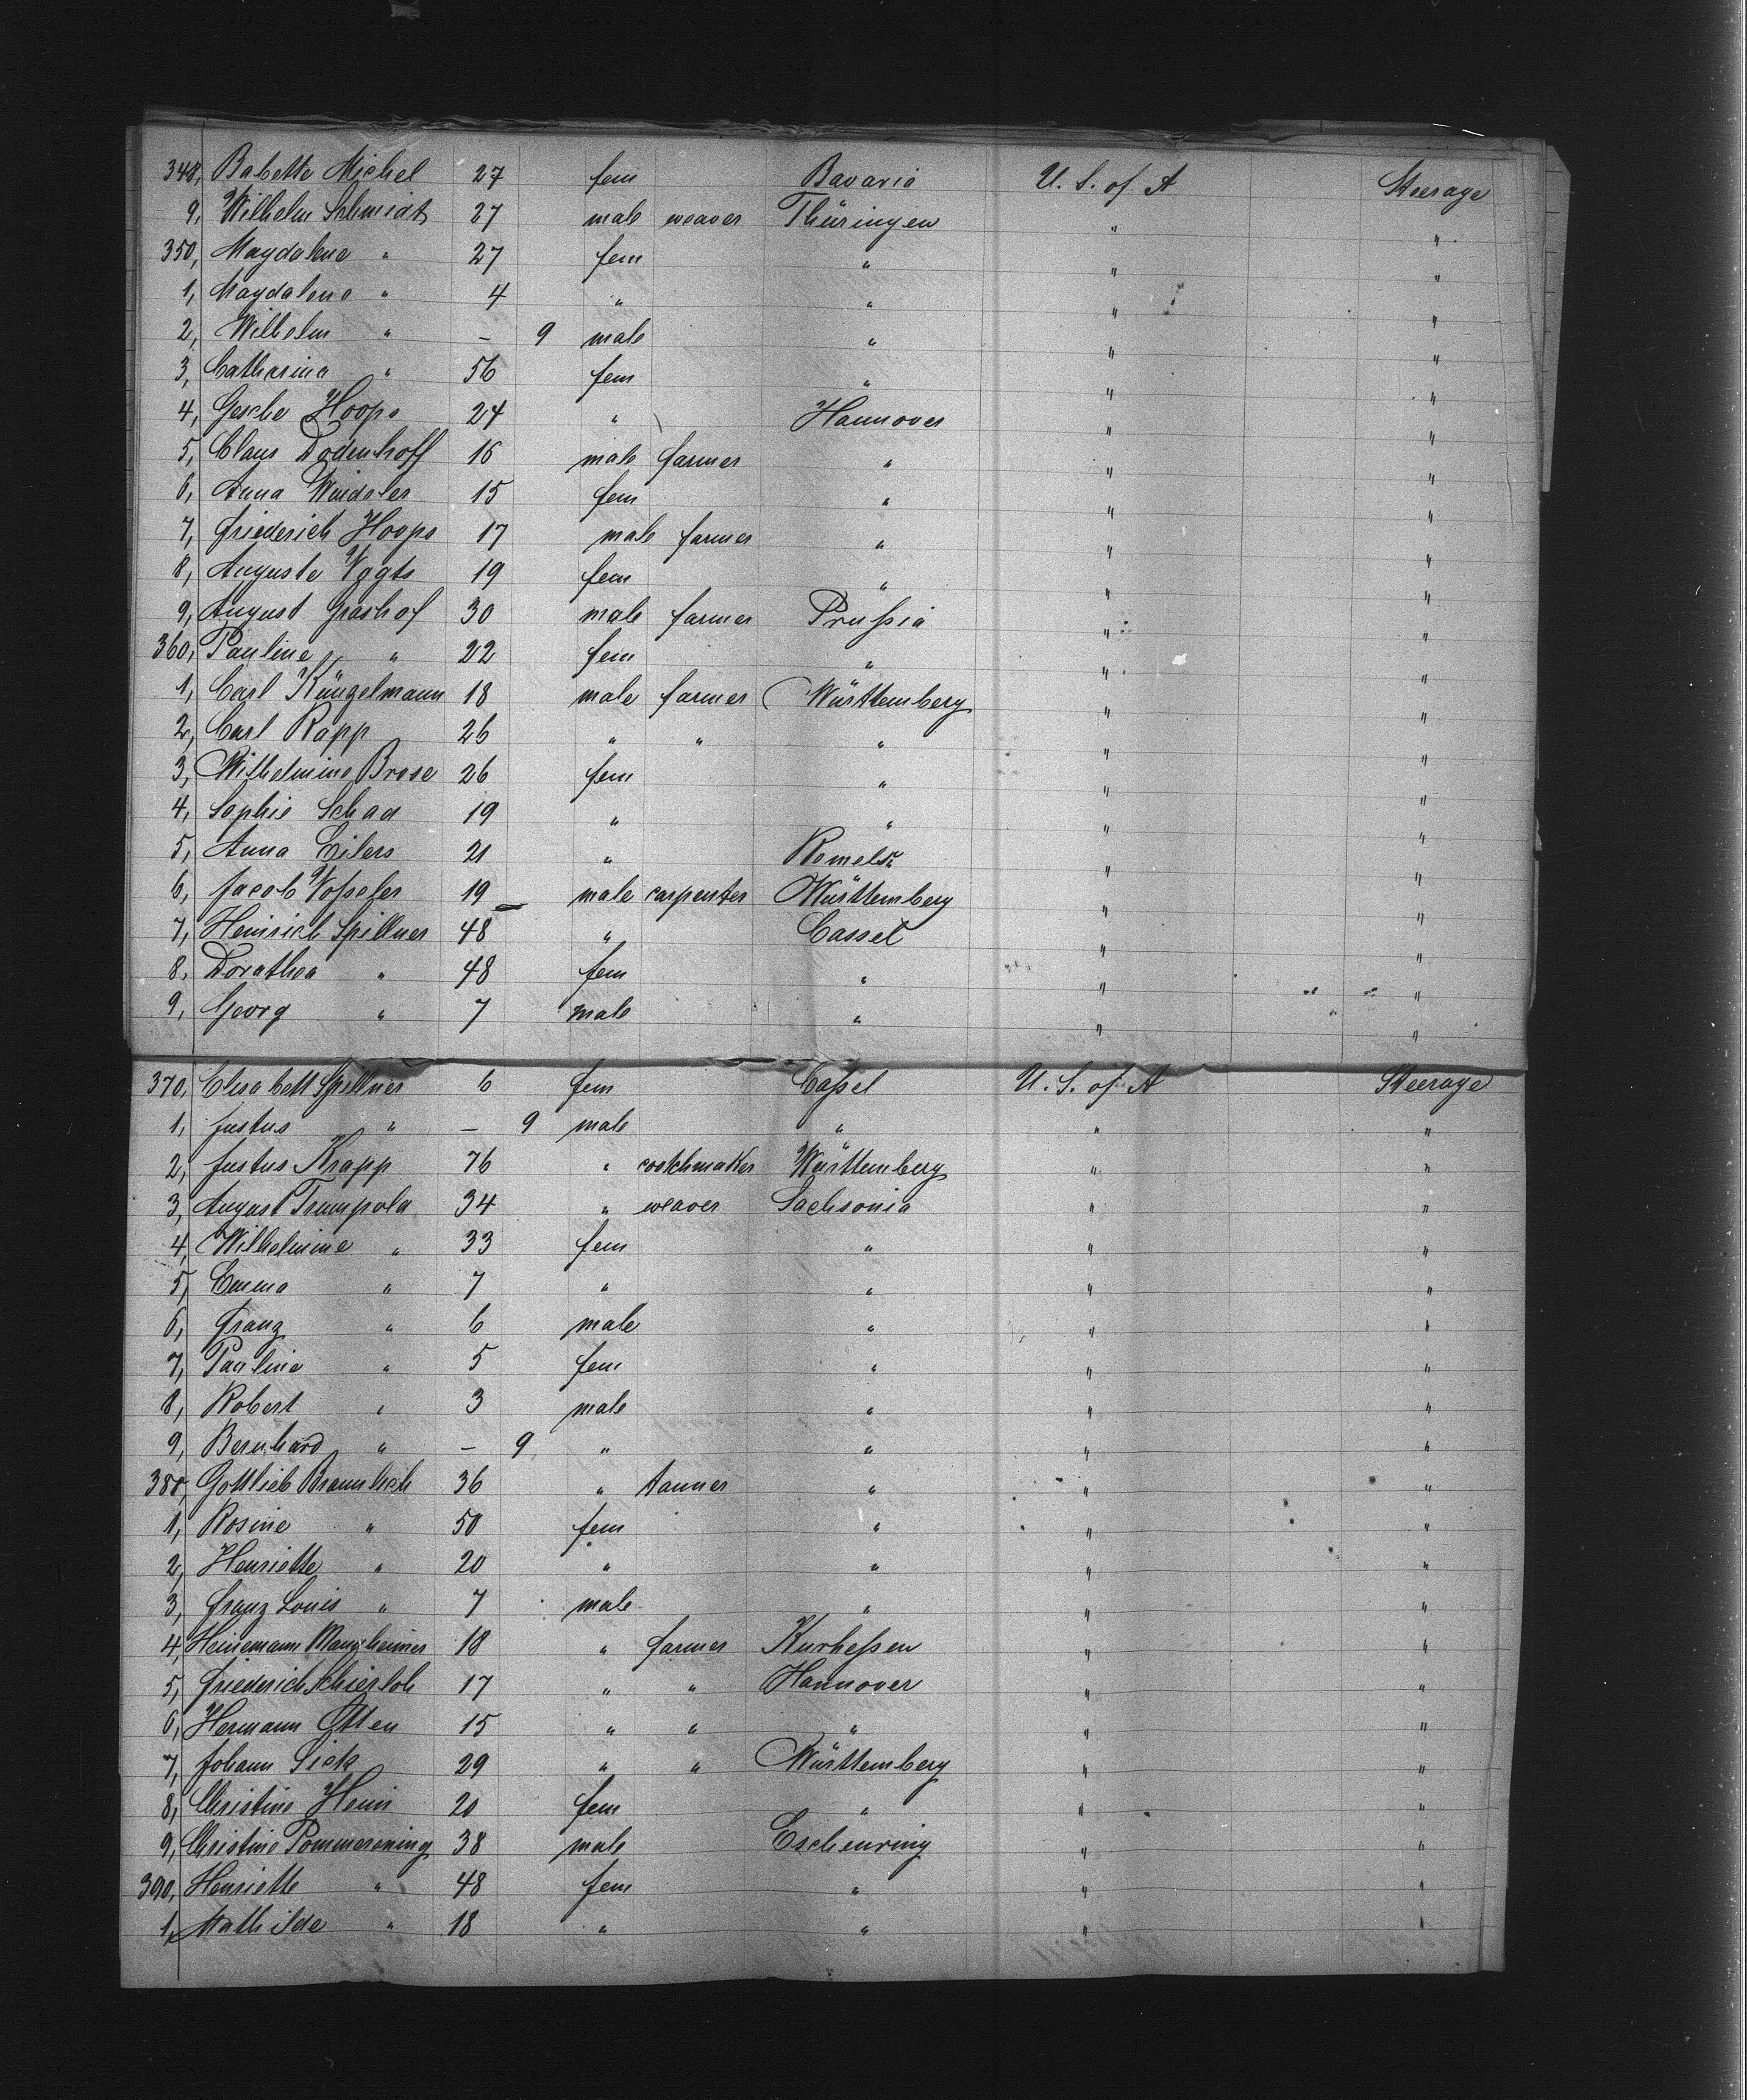 348, Babette Michel 27 fem Bavaria U. S. of A Steerage
9, Wilhelm Schmidt 27 male weaver Thüringen " "
350, Magdalene " 27 fem " " "
1, Magdalena " 4 " " " "
2, Wilhelm " – 9 male " " "
3, Catharina " 56 fem " " "
4, Gesche Hoops 24 " Hannover " "
5, Claus Dodenhoff 16 male farmer " " "
6, Anna 15 fem " " "
7, Friederich Hoops 17 male farmer " " "
8, Auguste Vogts 19 fem " " "
9, August Grashof 30 male farmer Prußia " "
360, Pauline " 22 fem " " "
1, Carl Küngelmann 18 male farmer Württemberg " "
2, Carl Rapp 26 " " " " "
3, Wilhelmine Brose 26 fem " " "
4, Sophie Schad 19 " " " "
5, Anna Eilers 21 " " "
6, Jacob Voßeler 19 male carpenter Württemberg " "
7, Heinrich Spillner 48 " Cassel " "
8, Dorathea " 48 fem " " "
9, Georg " 7 male " " "
370, Elisabett Spillner 6 fem Caßel U. S. of A Steerage
1, Justus " – 9 male " " "
2, Justus Krapp 76 " Württemberg " "
3, August Trumpold 34 " weaver Sachsonia " "
4, Wilhelmine " 33 fem " " "
5, Emma " 7 " " " "
6, Franz " 6 male " " "
7, Pauline " 5 fem " " "
8, Robert " 3 male " " "
9, Bernhard " – 9 " " " "
380, Gottlieb Braunlich 36 " tanner " " "
1, Rosine " 50 fem " " "
2, Henriette " 20 " " " "
3, Franz Louis " 7 male " " "
4, Heinemann 18 " farmer Kurheßen " "
5, Friederich Schierloh 17 " " Hannover " "
6, Hermann Otten 15 " " " " "
7, Johann Sick 29 " " Württemberg " "
8, Christine Heim 20 fem " " "
9, Christine Pommerening 38 male " "
390, Henriette " 48 fem " " "
1, Mathilde " 18 " " " "